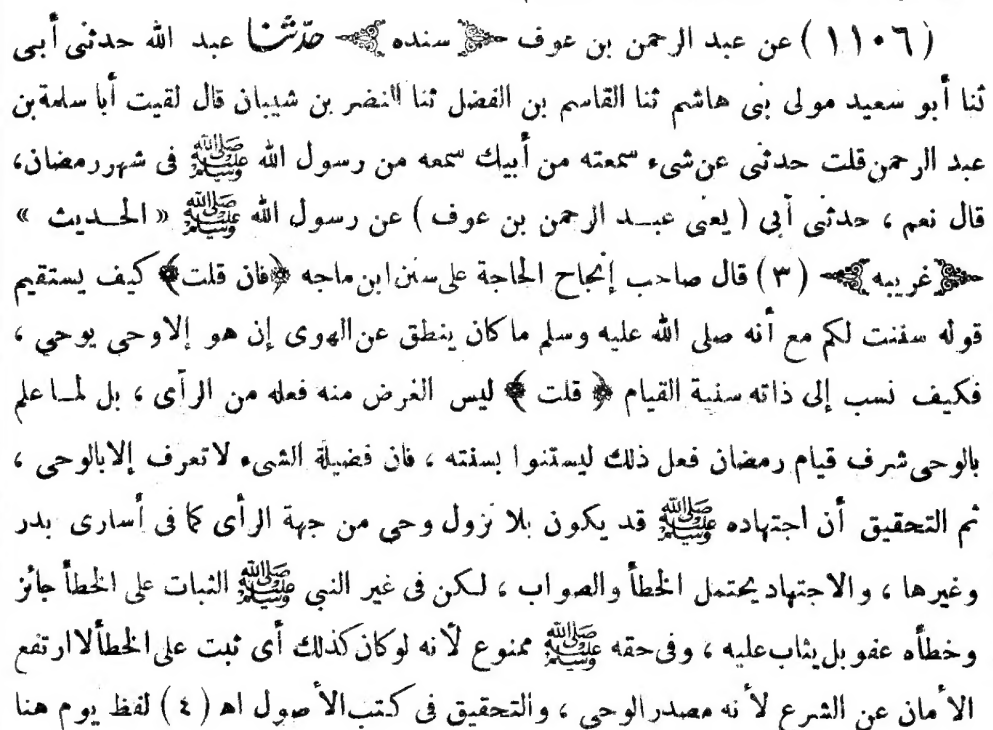 (١١٠٦) عن عبد الرحمن بن عوف ﴿سنده﴾ حدّثنا عبد الله حدثنى أبى
ثنا أبو سعيد مولى بنى هاشم ثنا القاسم بن الفضل ثنا النضر بن شيبان قال لقيت أبا سلمة بن
عبد الرحمن قلت حدثنى عن شىء سمعته من أبيك سمعه من رسول الله ﷺ فى شهر رمضان،
قال نعم ، حدثنى أبى ( يعنى عبد الرحمن بن عوف ) عن رسول الله ﷺ « الحديث »
﴿غريبه﴾ (٣) قال صاحب إنجاح الحاجة على سنن ابن ماجه ﴿فان قلت﴾ كيف يستقيم
قوله سننت لكم مع أنه صلى الله عليه وسلم ما كان ينطق عن الهوى إن هو إلا وحى يوحى ،
فكيف نسب إلى ذاته سنية القيام ﴿ قلت ﴾ ليس الغرض منه فعله من الرأى ، بل لما علم
بالوحى شرف قيام رمضان فعل ذلك ليستنوا بسنته ، فان فضيلة الشىء لا تعرف إلا بالوحى ،
ثم التحقيق أن اجتهاده ﷺ قد يكون بلا نزول وحى من جهة الرأى كما فى أسارى بدر
وغيرها ، والاجتهاد يحتمل الخطأ والصواب ، لكن فى غير النبي ﷺ الثبات على الخطأ جائز
وخطأه عفو بل يثاب عليه ، وفى حقه ﷺ ممنوع لأنه لو كان كذلك أى ثبت على الخطأ لارتفع
الأمان عن الشرع لأنه مصدر الوحى ، والتحقيق فى كتب الأصول اه (٤) لفظ يوم هنا